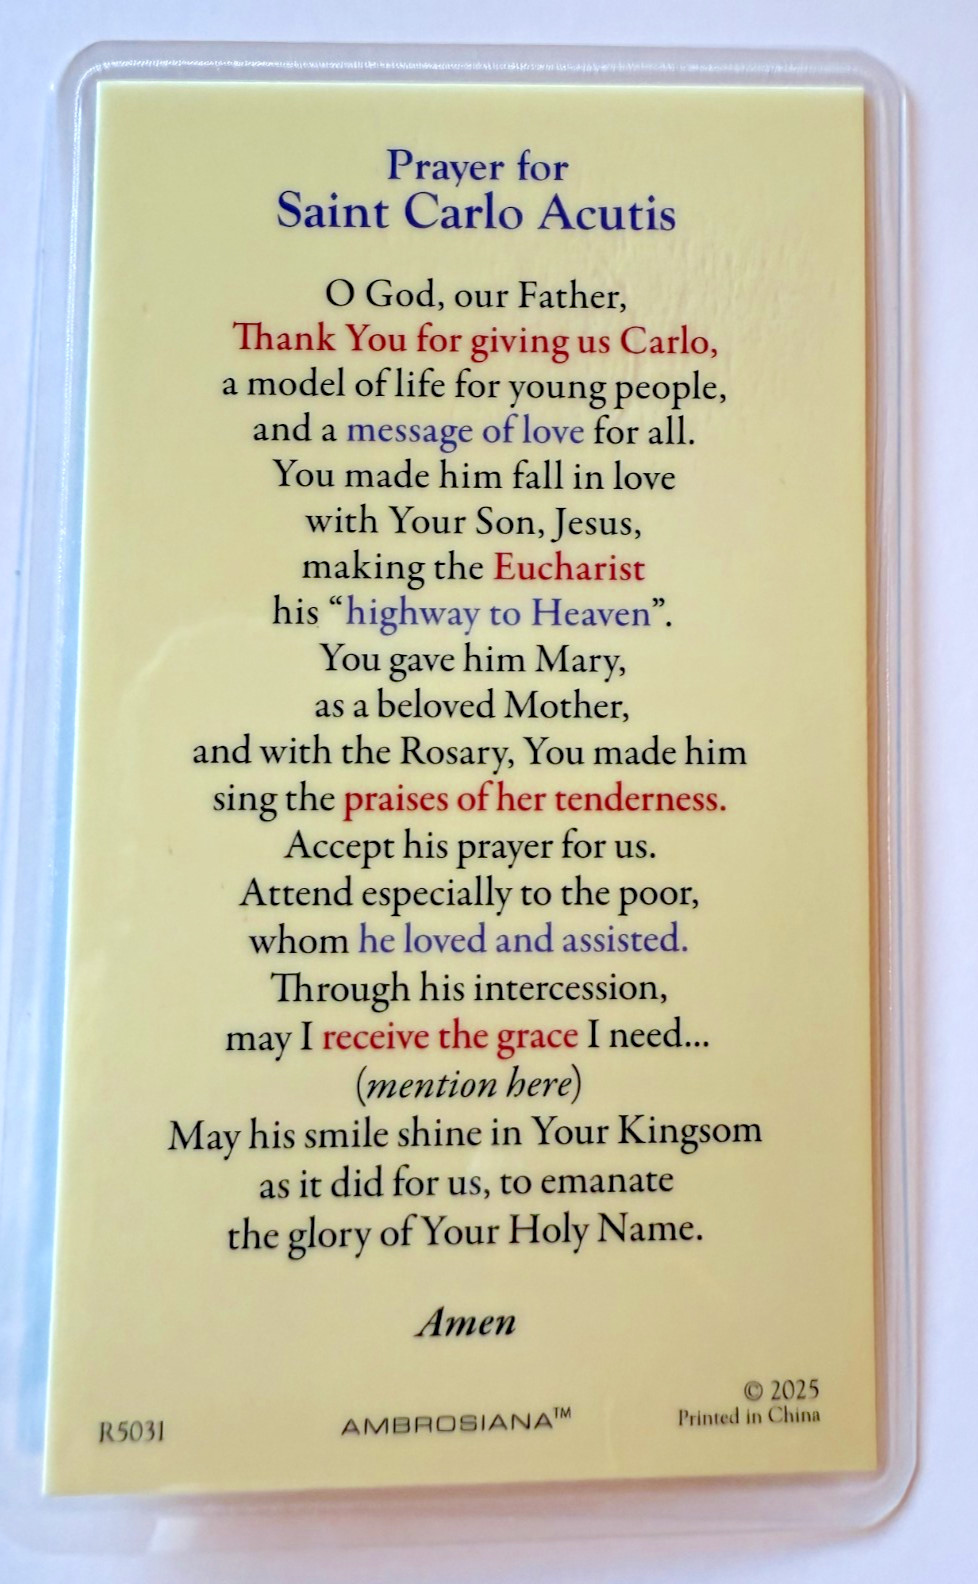 Prayer for
Saint Carlo Acutis
O God, our Father,
Thank You for giving us Carlo,
a model of life for young people,
and a message of love for all.
You made him fall in love
with Your Son, Jesus,
making the Eucharist
his “highway to Heaven”.
You gave him Mary,
as a beloved Mother,
and with the Rosary, You made him
sing the praises of her tenderness.
Accept his prayer for us.
Attend especially to the poor,
whom he loved and assisted.
Through his intercession,
may I receive the grace I need...
(mention here)
May his smile shine in Your Kingsom
as it did for us, to emanate
the glory of Your Holy Name.
Amen
R5031
AMBROSIANA™
© 2025
Printed in China